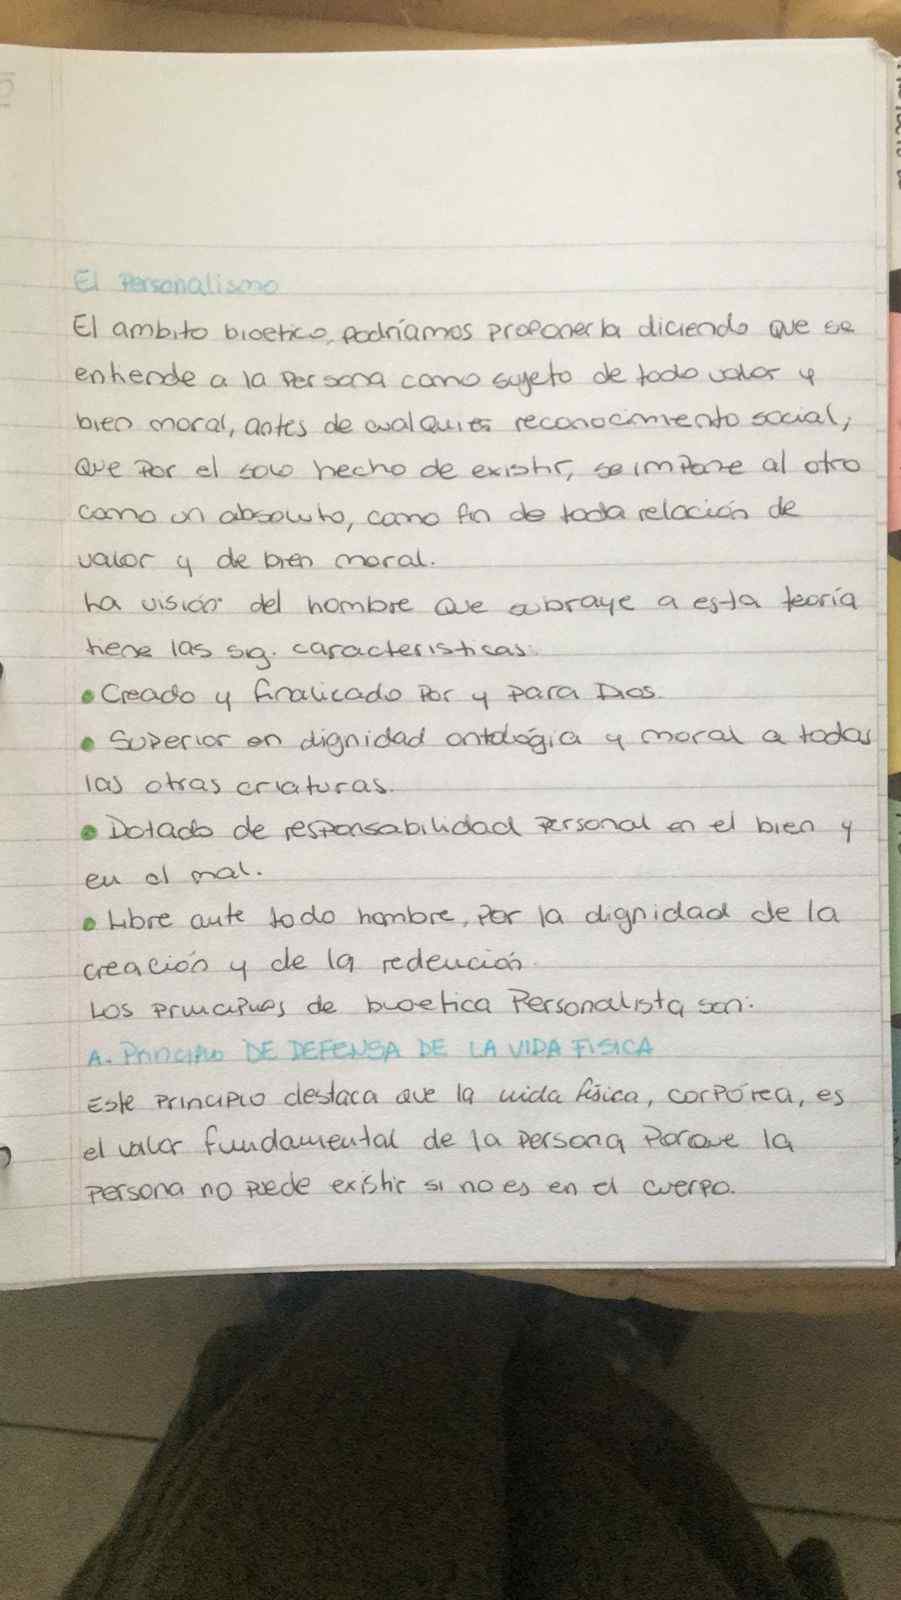 El Personalismo
El ambito bioetico, podríamos proponerla diciendo que se
entiende a la persona como sujeto de todo valor y
bien moral, antes de cualquier reconocimiento social,
que por el solo hecho de existir, se impone al otro
como un absoluto, como fin de toda relación de
valor y de bien moral.
La visión del hombre que subraye a esta teoría
tiene las sig. caracteristicas:
Creado y finalicado por y para Dios.
Superior en dignidad ontológia y moral a todas
las otras criaturas.
Dotado de responsabilidad personal en el bien y
en el mal.
Libre ante todo hombre, por la dignidad de la
creación y de la redención.
Los principios de bioetica Personalista son:
A. PRINCIPIO DE DEFENSA DE LA VIDA FISICA
Este principio destaca que la vida física, corpórea, es
el valor fundamental de la persona porque la
persona no puede existir si no es en el cuerpo.